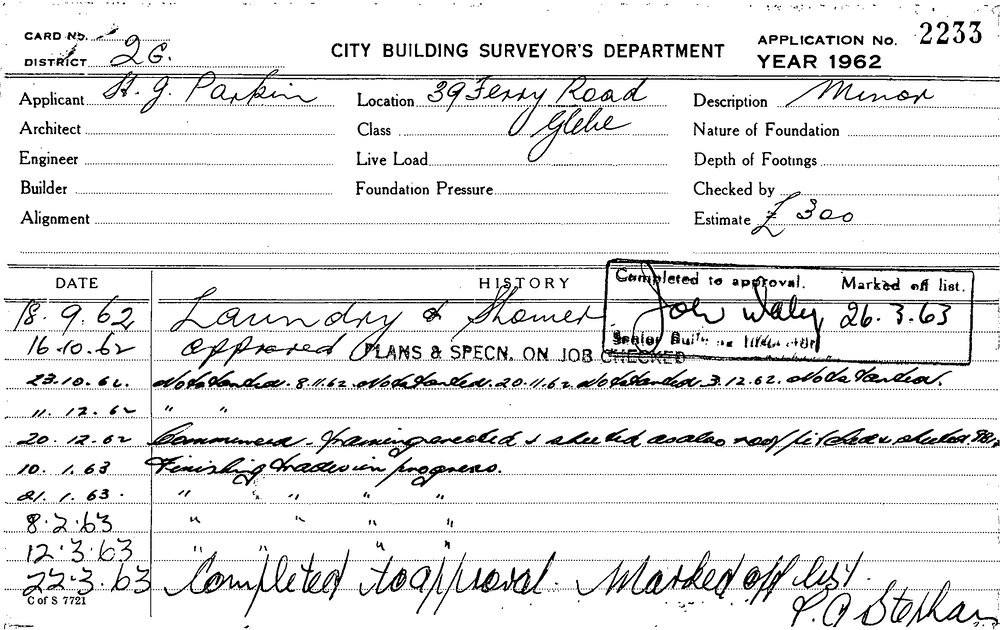 CARD No. CITY BUILDING SURVEYOR'S DEPARTMENT APPLICATION No. 2233
DISTRICT 26. YEAR 1962
Applicant H. J. Parkin Location 39 Ferry Road Description Minor
Architect Class Glebe Nature of Foundation
Engineer Live Load Depth of Footings
Builder Foundation Pressure Checked by
Alignment Estimate £ 300
DATE HISTORY Completed to approval. Marked off list.
18. 9. 62 Laundry & Shower John Daley 26. 3. 63
Senior
16.10.62 approved PLANS & SPECN. ON JOB CHECKED
23.10.62. Not Started. 8.11.62. Not Started. 20.11.62. Not Started. 3.12.62. Not Started.
11. 12. 62 " "
20. 12. 62 Commenced. Framing erected & sheeted as also roof pitched & sheeted.
10. 1. 63 Finishing trades in progress.
21. 1. 63. " " " "
8. 2. 63 " " " "
12. 3. 63 " " " "
22. 3. 63 Completed to approval. Marked off list.
C of S 7721